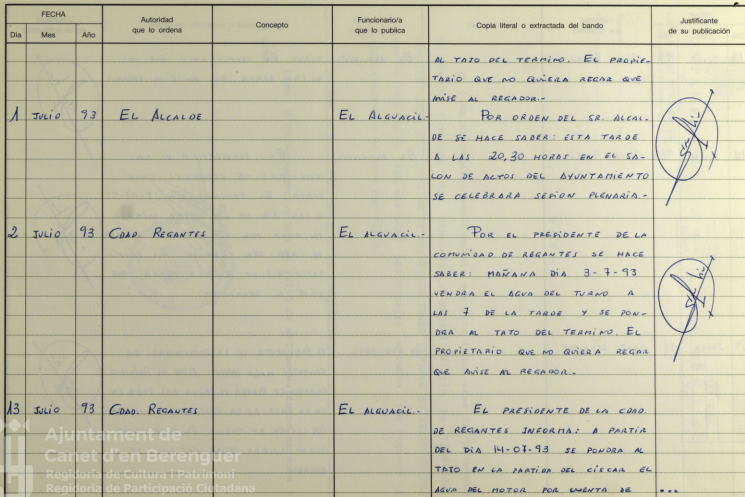 FECHA
Día Mes Año
Autoridad
que lo ordena
Concepto
Funcionario/a
que lo publica
Copia literal o extractada del bando
Justificante
de su publicación
AL TAJO DEL TERMINO. EL PROPIE-
TARIO QUE NO QUIERA REGAR QUE
AVISE AL REGADOR.-
1 JULIO 93 EL ALCALDE EL ALGUACIL.- POR ORDEN DEL SR. ALCAL-
DE SE HACE SABER: ESTA TARDE
A LAS 20,30 HORAS EN EL SA-
LON DE ACTOS DEL AYUNTAMIENTO
SE CELEBRARA SESION PLENARIA.-
2 JULIO 93 COAD. REGANTES EL ALGUACIL.- POR EL PRESIDENTE DE LA
COMUNIDAD DE REGANTES SE HACE
SABER: MAÑANA DIA 3-7-93
VENDRA EL AGUA DEL TURNO A
LAS 7 DE LA TARDE Y SE PON-
DRA AL TAJO DEL TERMINO. EL
PROPIETARIO QUE NO QUIERA REGAR
QUE AVISE AL REGADOR.-
13 JULIO 93 COAD. REGANTES EL ALGUACIL.- EL PRESIDENTE DE LA COAD.
DE REGANTES INFORMA: A PARTIR
DEL DIA 14-07-93 SE PONDRA AL
TAJO EN LA PARTIDA DEL CISCAR EL
AGUA DEL MOTOR POR CUENTA DE ...
Ajuntament de
Canet d'en Berenguer
Regidoria de Cultura i Patrimoni
Regidoria de Participació Ciutadana